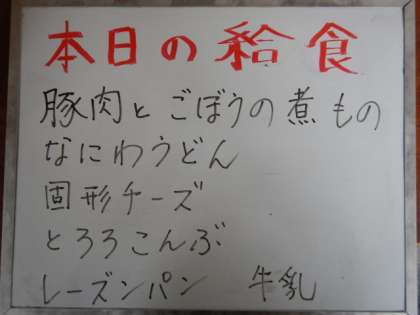 本日の給食
豚肉とごぼうの煮もの
なにわうどん
固形チーズ
とろろこんぶ
レーズンパン 牛乳